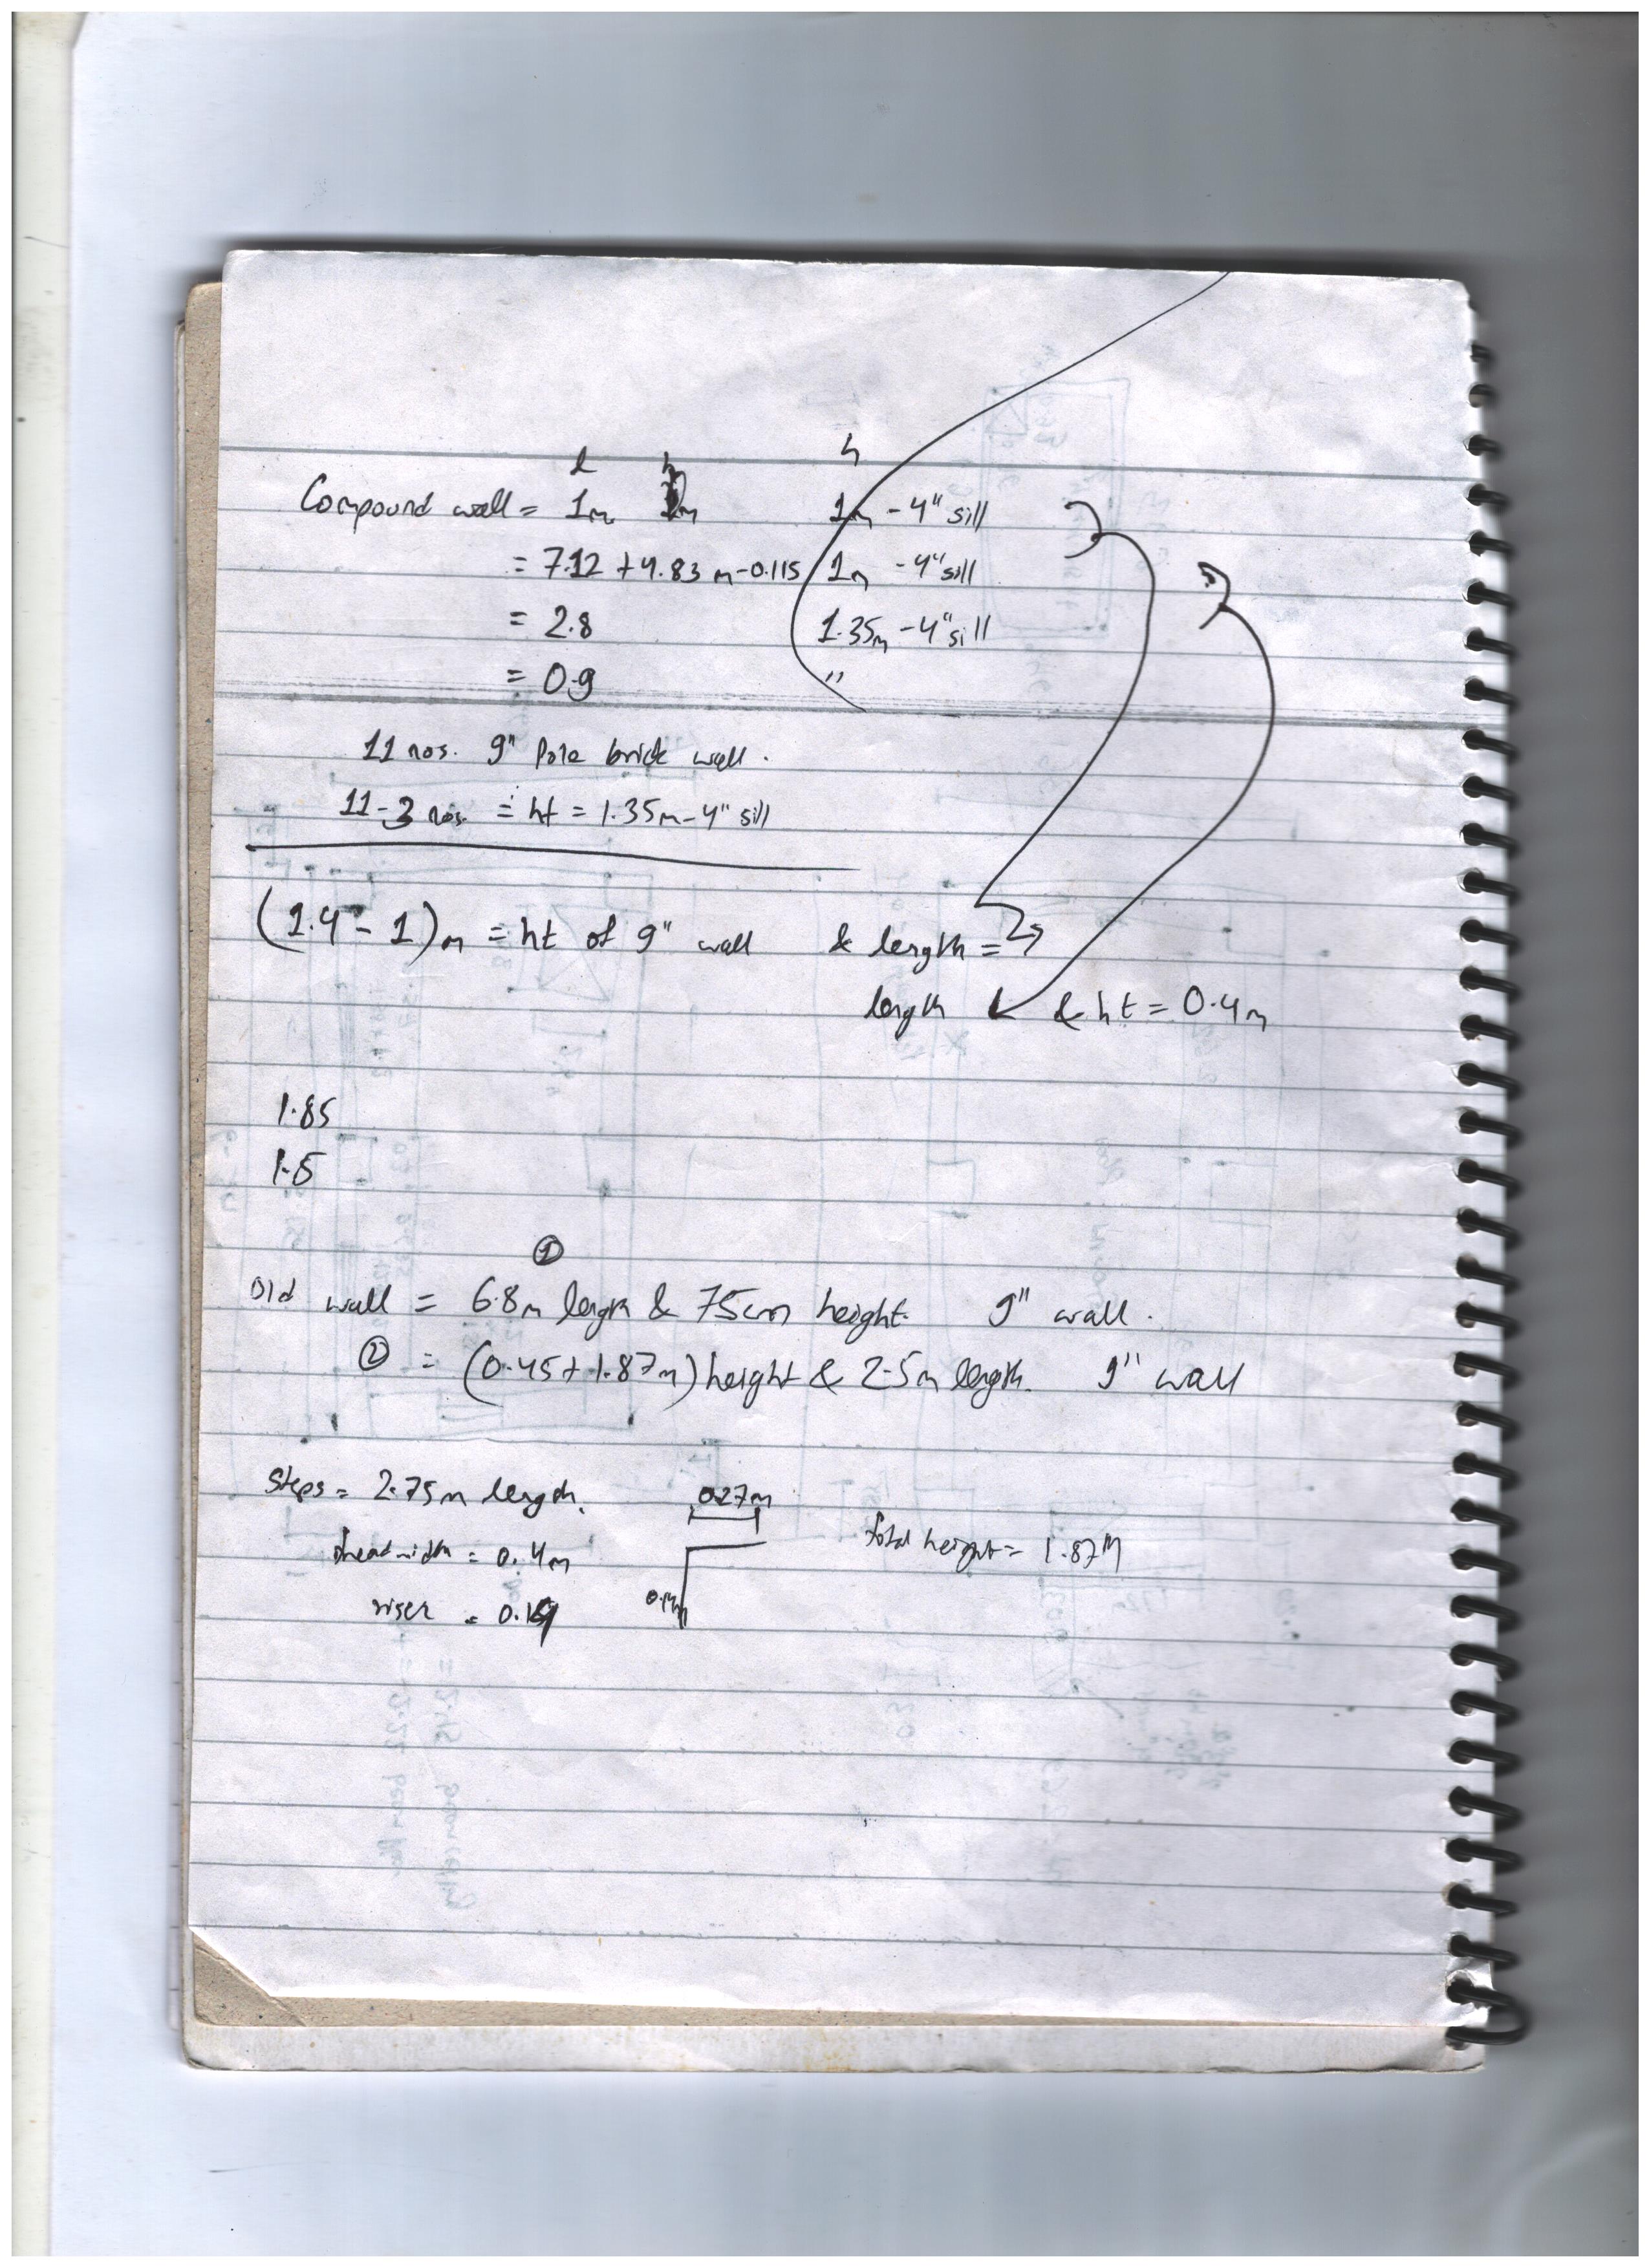 l h
Compound wall = 1m 1m - 4" sill
= 7.12 + 4.83 m - 0.115 1m - 4" sill
= 2.8 1.35m - 4" sill
= 0.9 "
11 nos. 9" Pole brick wall.
11-3 nos. = ht = 1.35m - 4" sill
(1.4 - 1)m = ht of 9" wall & length =
length & ht = 0.4m
1.85
1.5
①
Old wall = 6.8m length & 75cm height. 9" wall.
② = (0.45 + 1.87m) height & 2.5m length. 9" wall
Steps = 2.75m length. 0.27m
width = 0.4m total height = 1.87m
riser = 0.19